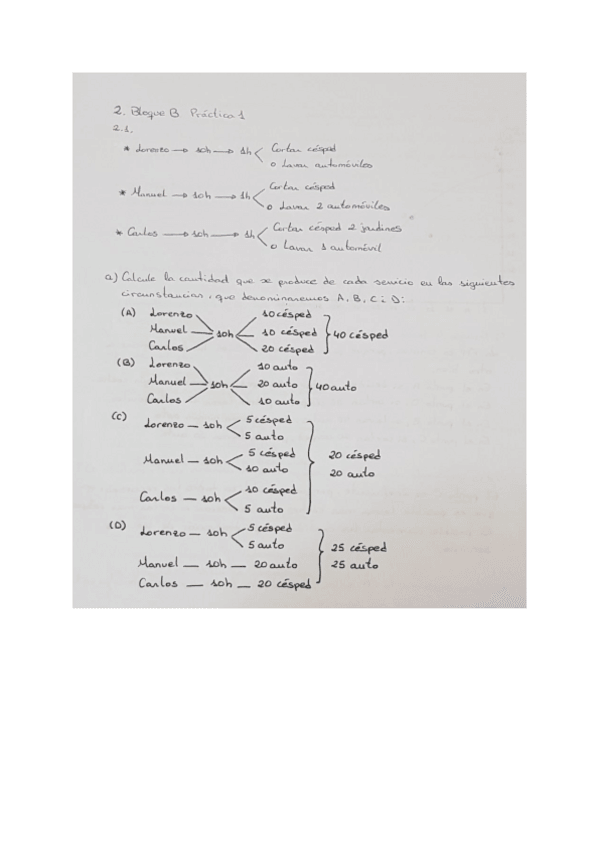 2. Bloque B Práctica 1
2.1.
* Lorenzo → 10h → 1h < Cortar césped
o Lavar automóviles
* Manuel → 10h → 1h < Cortar césped
o Lavar 2 automóviles
* Carlos → 10h → 1h < Cortar césped 2 jardines
o Lavar 1 automóvil
a) Calcule la cantidad que se produce de cada servicio en las siguientes
circunstancias, que denominaremos A, B, C i D:
(A) Lorenzo 10 césped
Manuel 10h 10 césped 40 césped
Carlos 20 césped
(B) Lorenzo 10 auto
Manuel 10h 20 auto 40 auto
Carlos 10 auto
(C) Lorenzo — 10h < 5 césped
5 auto
Manuel — 10h < 5 césped 20 césped
10 auto 20 auto
Carlos — 10h < 10 césped
5 auto
(D) Lorenzo — 10h < 5 césped
5 auto 25 césped
Manuel — 10h — 20 auto 25 auto
Carlos — 10h — 20 césped